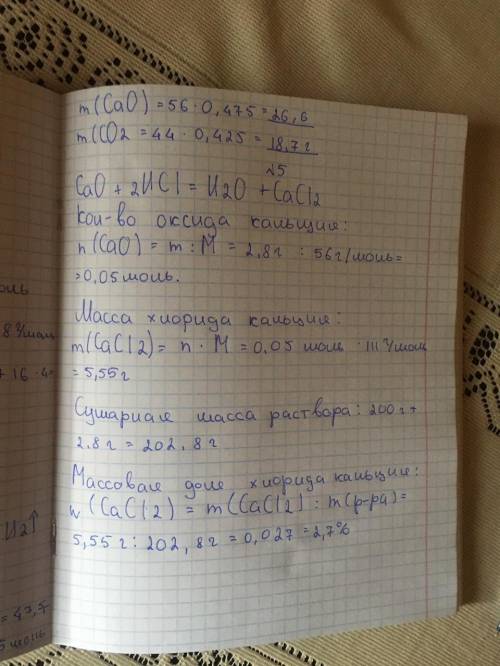 m(CaO) = 56 · 0,475 = 26,6
m(CO2 = 44 · 0,425 = 18,7 г
√5
CaO + 2HCl = H2O + CaCl2
Кол-во оксида кальция:
n(CaO) = m : M = 2,8г : 56г/моль=
=0,05 моль.
Масса хлорида кальция:
m(CaCl2) = n · M = 0,05 моль · 111 г/моль
= 5,55г
Сумарная масса раствора: 200г +
2.8г = 202,8г
Массовая доля хлорида кальция:
w(CaCl2) = m(CaCl2) : m(р-ра)=
5,55г : 202,8г = 0,027 = 2,7%
оль
8 г/моль
+ 16 · 4
H2↑
= 47,5
5 моль